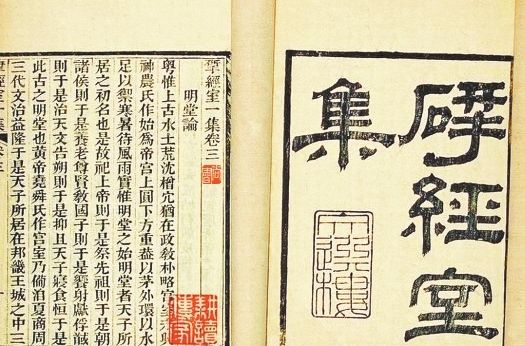 揅經室
集
文選樓
揅經室一集卷三
明堂論
粵惟上古水土荒沈橧穴猶在政教朴略宮室未興
神農氏作始爲帝宮上圜下方重蓋以茅外環以水
足以禦寒暑待風雨實惟明堂之始明堂者天子所
居之初名也是故祀上帝則于是祭先祖則于是朝
諸侯則于是養老尊賢敎國子則于是饗射獻俘馘
則于是治天文告朔則于是抑且天子寢食恒于是
此古之明堂也黃帝堯舜氏作宮室乃備洎夏商周
三代文治益隆于是天子所居在邦畿王城之中三
揅經室一集 卷三